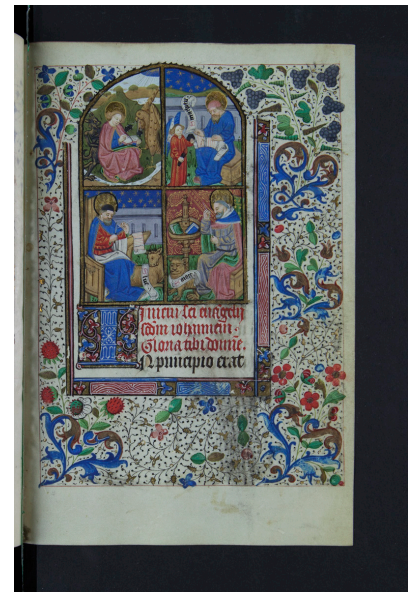 Iniciu sci euvägelii
scdm iohannem.
Gloria tibi domine.
IN principio erat